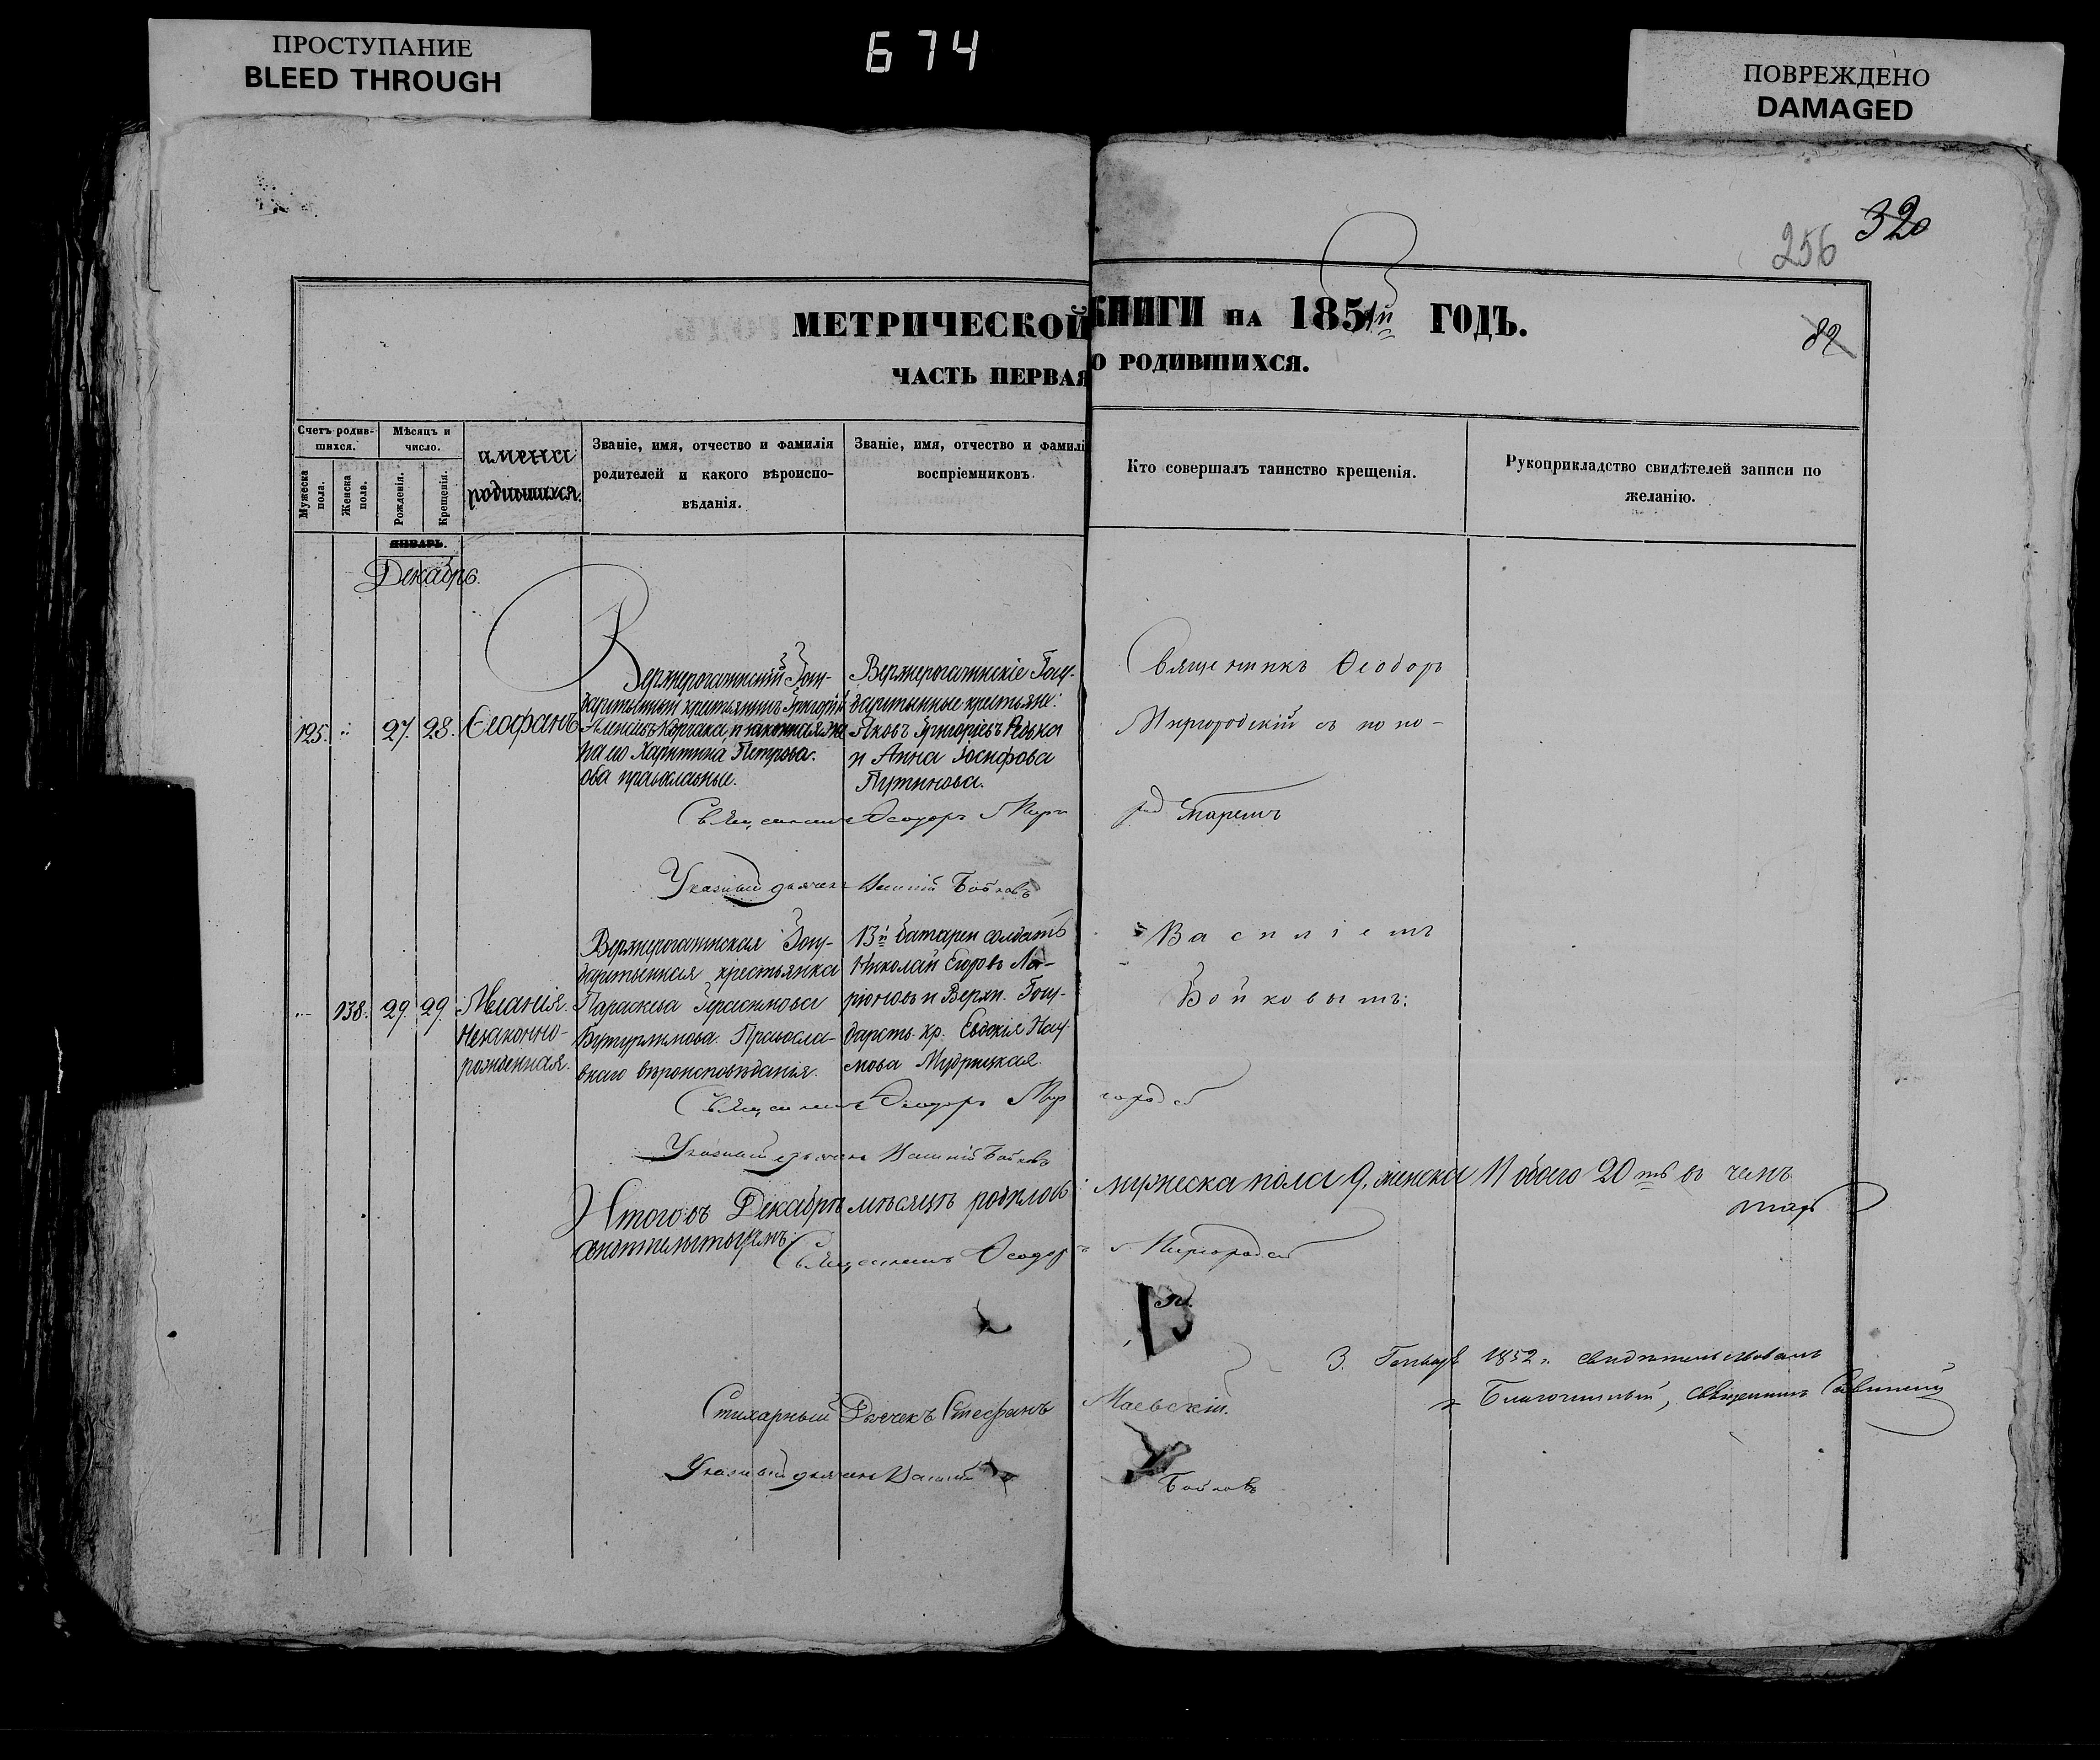 ПРОСТУПАНИЕ
BLEED THROUGH
674
ПОВРЕЖДЕНО
DAMAGED
320
256
82
МЕТРИЧЕСКОЙ КНИГИ НА 1851й ГОДЪ.
ЧАСТЬ ПЕРВАЯ О РОДИВШИХСЯ.
Счетъ родив-
шихся.
Мужеска
пола.
Женска
пола.
Мѣсяцъ и
число.
Рожденія.
Крещенія.
имена
родившихся.
Званіе, имя, отчество и фамилія
родителей и какого вѣроиспо-
вѣданія.
Званіе, имя, отчество и фамилі
воспріемниковъ.
Кто совершалъ таинство крещенія.
Рукоприкладство свидѣтелей записи по
желанію.
ЯНВАРЬ.
Декабрь.
125. 27. 28. Ѳеофанъ
Верхнерогачинскій Госу-
дарственный крестьянинъ Григорій
Алексѣевъ и законная же-
на его Харитина Петрова.
оба православные.
Верхнерогачинскіе Госу-
дарственные крестьяне:
Яковъ Григорьевъ Редька
и Анна Іосифова
Путинова.
Священникъ Ѳеодоръ
Миргородскій съ поно-
маремъ
Священникъ Ѳеодоръ Мирго
Указный дьячекъ Василій Бойковъ
138. 29. 29. Меланія.
Незаконно-
рожденная.
Верхнерогачинская Госу-
дарственная крестьянка
Параскева Герасимова
Бутурлимова. Правосла-
внаго вѣроисповѣданія.
13й батареи солдатъ
Николай Егоровъ Ла-
ріоновъ и Верхн. Госу-
дарств. кр. Евдокія Нау-
мова Мудрицкая.
Василіемъ
Бойковымъ:
Священникъ Ѳеодоръ Миргород
Указный дьячекъ Василій Бойковъ
Итого въ Декабрѣ мѣсяцѣ родилось: мужеска пола 9, женска 11 обоего 20ть въ чемъ
свидѣтельствуемъ:
Священникъ Ѳеодоръ Миргородск
3. Генваря 1852 г. свидѣтельствовалъ
Благочинный, священникъ Савицкій
Стихарный Дьячекъ Стефанъ Маевскій.
Указный дьячекъ Василій Бойковъ